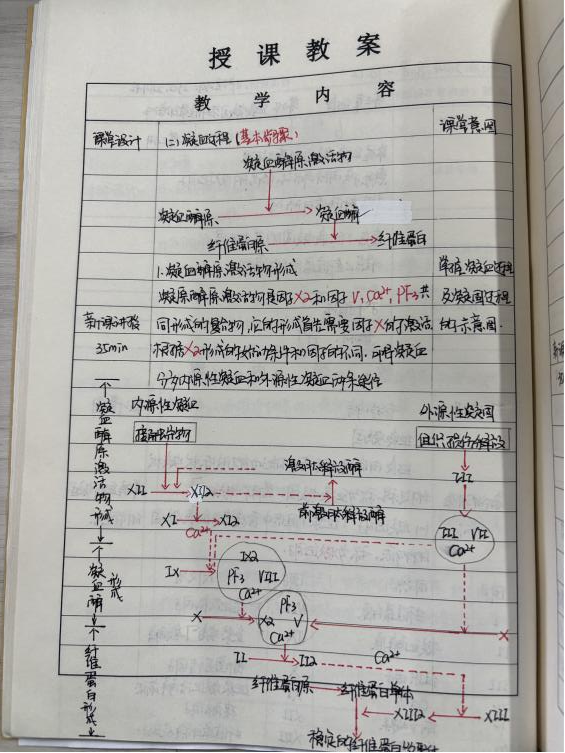 授课教案
教学内容
课堂设计 (二)凝血过程(基本步骤) 课堂意图
凝血酶原激活物
凝血酶原 凝血酶
纤维蛋白原 纤维蛋白
1.凝血酶原激活物形成 掌握凝血过程
凝原酶原激活物是因子X2和因子V,Ca²⁺,PF3共 及凝固过程
新课讲授 同形成的复合物,它的形成首先需要因子X的激活 的示意图.
35min 根据X2形成的始动条件和因子的不同,可将凝血
分为内源性凝血和外源性凝血两条途径
内源性凝血 外源性凝固
组织损伤释放
激肽释放酶 III
XII XI2
前激肽释放酶
XI XI2 III VII
Ca²⁺ Ca²⁺
IX IX2
PF3 VIII
Ca²⁺
PF3
X X2 V X
Ca²⁺
II II2 Ca²⁺
纤维蛋白原 纤维蛋白单体
XIII2 XIII
稳定的纤维蛋白
凝血酶原激活物形成
凝血酶形成
纤维蛋白形成